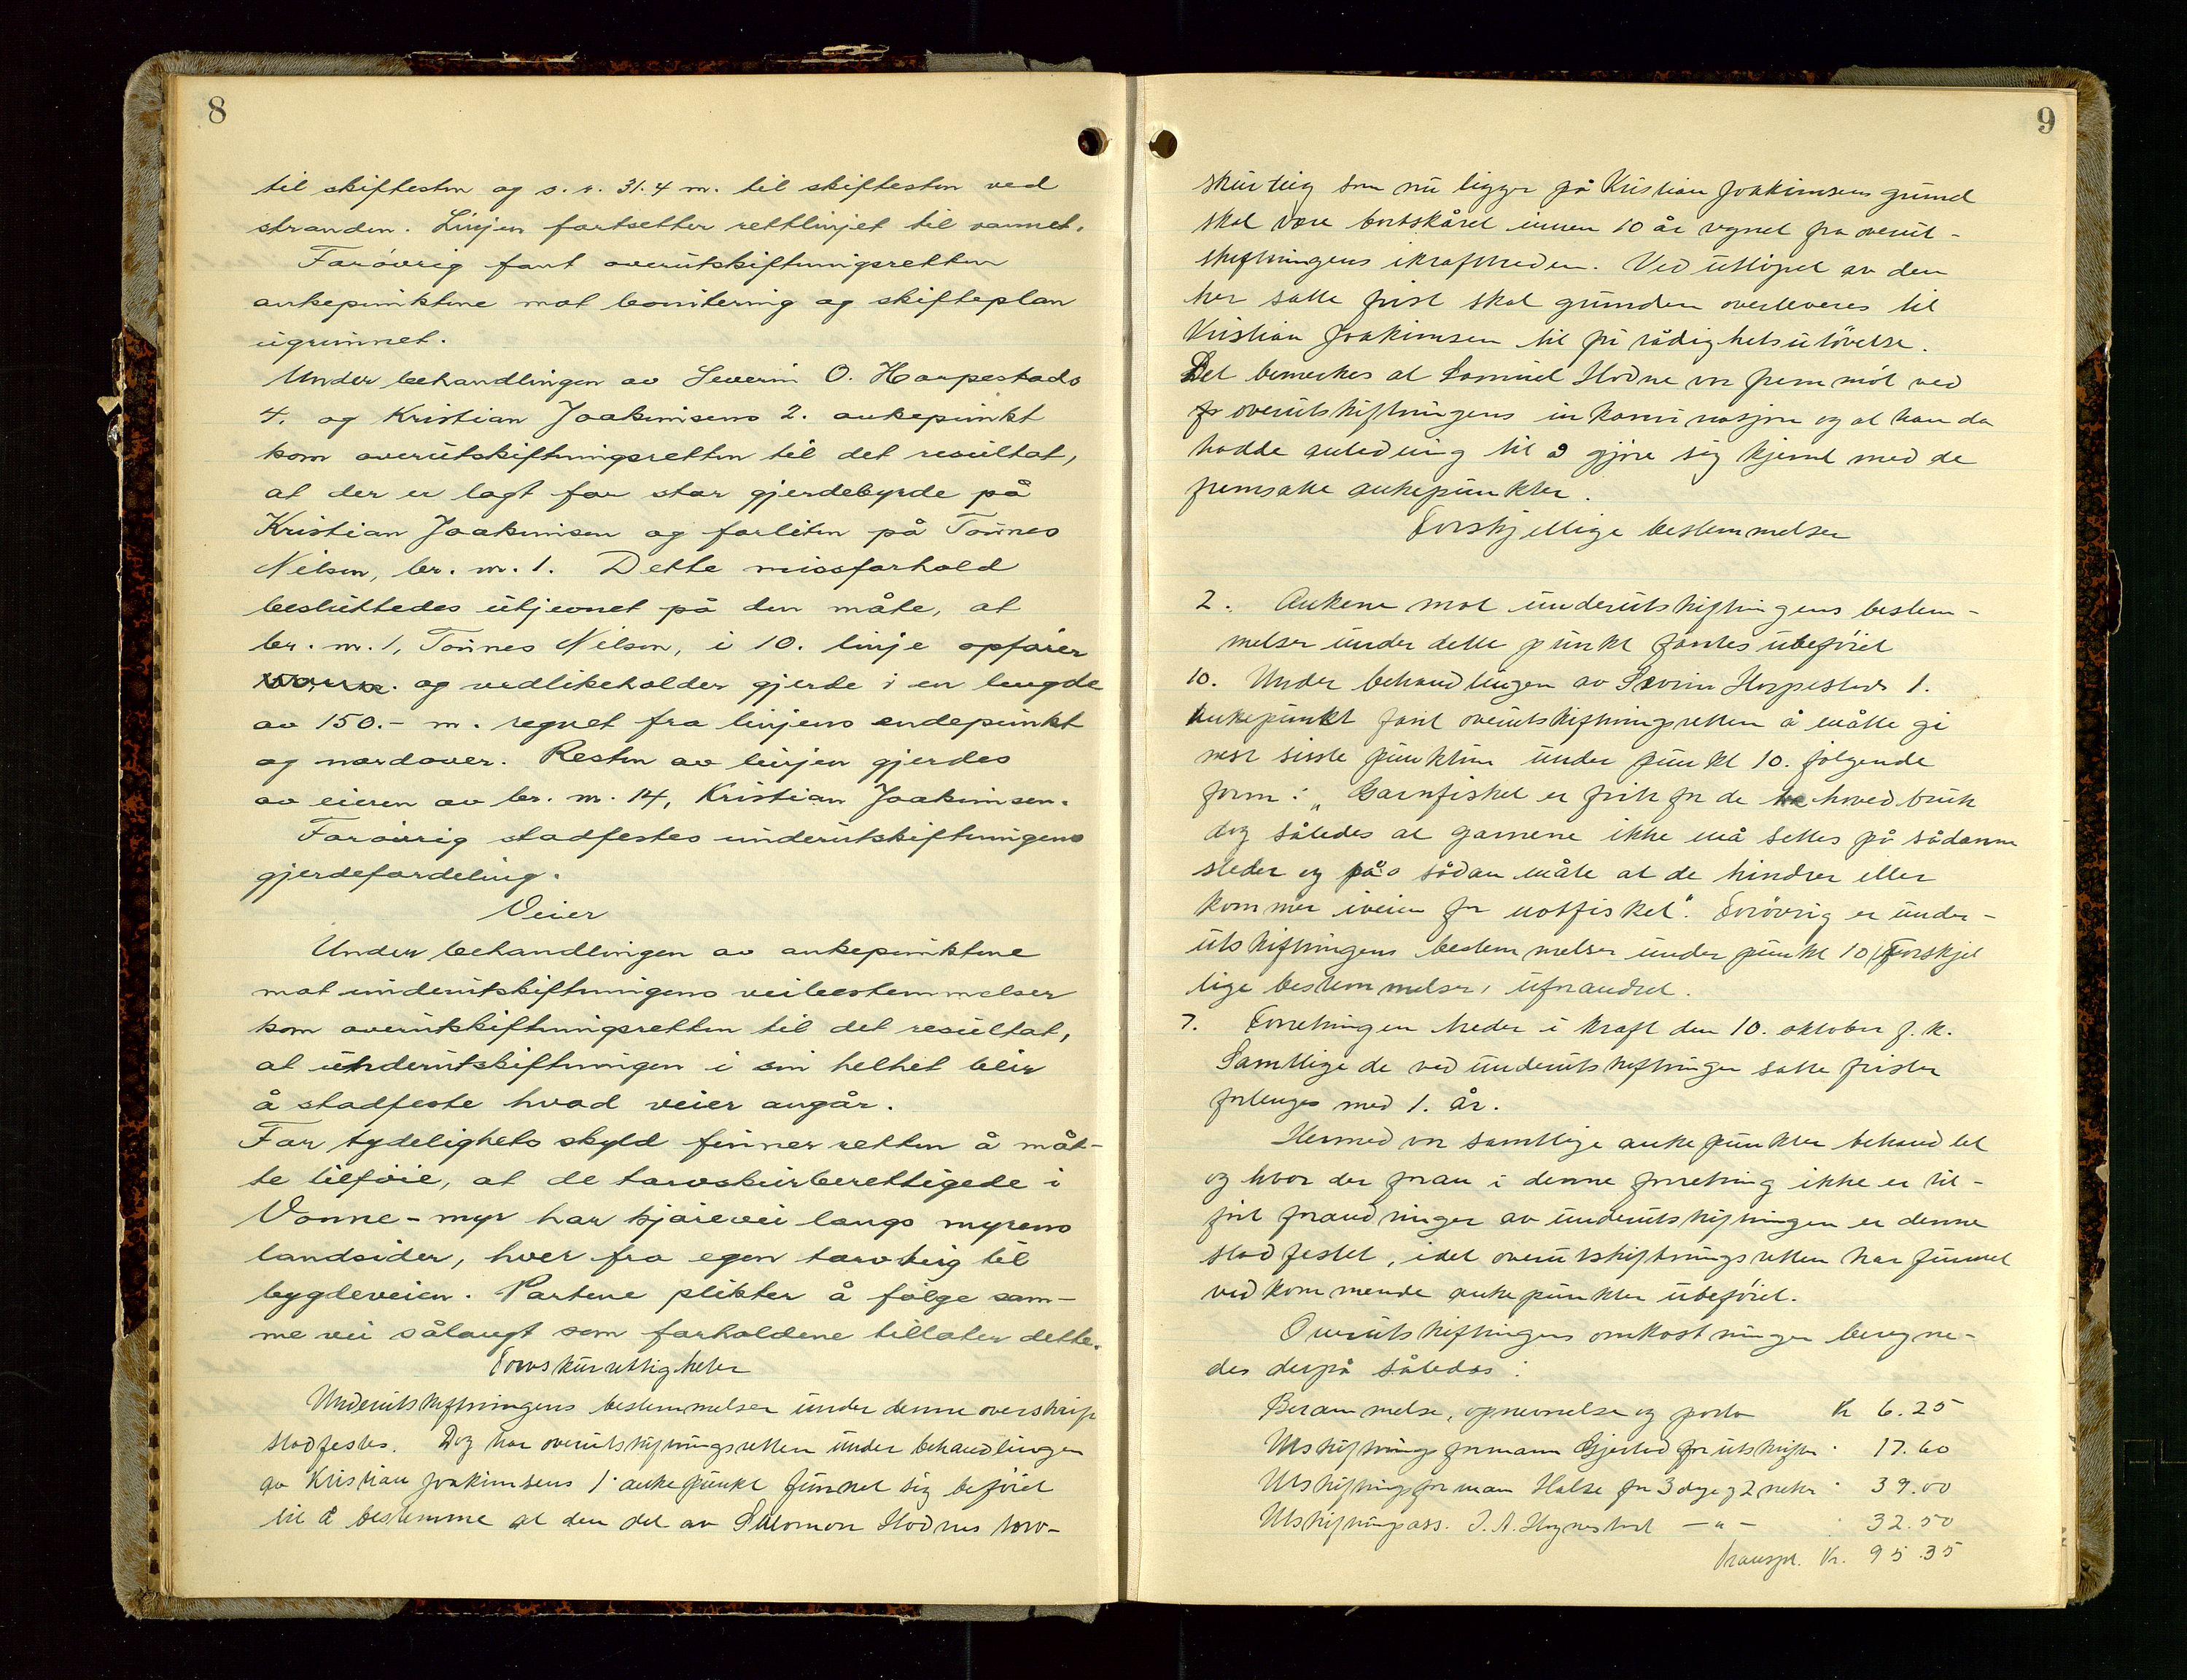 8
til skiftesten og s. v. 31.4 m. til skiftesten ved
stranden. Linjen fortsetter rettlinjet til vannet.
Forøvrig fant overutskiftningsretten
ankepunktene mot bonitering og skifteplan
ugrunnet.
Under behandlingen av Severin O. Harpestads
4. og Kristian Joakimsens 2. ankepunkt
kom overutskiftningsretten til det resultat,
at der er lagt for stor gjerdebyrde på
Kristian Joakimsen og forliten på Tønnes
Nilsen, br. nr. 1. Dette missforhold
besluttedes utjevnet på den måte, at
br. nr. 1, Tønnes Nilsen, i 10. linje opfører
og vedlikeholder gjerde i en lengde
av 150.- m. regnet fra linjens endepunkt
og nordover. Resten av linjen gjerdes
av eieren av br. nr. 14, Kristian Joakimsen.
Forøvrig stadfestes underutskiftningens
gjerdefordeling.
Veier
Under behandlingen av ankepunktene
mot underutskiftningens veibestemmelser
kom overutskiftningsretten til det resultat,
at underutskiftningen i sin helhet blir
å stadfeste hvad veier angår.
For tydelighets skyld finner retten å måt-
te tilføie, at de torvskurberettigede i
Vonne-myr har kjørevei langs myrens
landsider, hver fra egen torvteig til
bygdeveien. Partene plikter å følge sam-
me vei sålangt som forholdene tillater dette.
Torvskurrettigheter
Underutskiftningens bestemmelser under denne overskrift
stadfestes. Dog har overutskiftningsretten under behandlingen
av Kristian Joakimsens 1. ankepunkt funnet sig beføiet
til å bestemme at den del av Salomon Hodnes torv-
9
skurteig som nu ligger på Kristian Joakimsens grund
skal være bortskåret innen 10 år regnet fra overut-
skiftningens ikrafttreden. Ved utløpet av den
her satte frist skal grunden overleveres til
Kristian Joakimsen til fri rådighetsutøvelse.
Det bemerkes at Samuel Hodne var fremmøt ved
overutskiftningens inkaminasjon og at han da
hadde anledning til å gjøre sig kjennt med de
fremsatte ankepunkter.
Forskjellige bestemmelser
2. Ankene mot underutskiftningens bestem-
melser under dette punkt fantes ubeføiet
10. Under behandlingen av Severin Harpestads 1.
ankepunkt fant overutskiftningsretten å måtte gi
nest siste punktum under punkt 10. følgende
form: "Garnfisket er fritt for de hovedbruk
dog således at garnene ikke må settes på sådanne
steder og på sådan måte at de hindrer eller
kommer iveien for notfisket". Forøvrig er under-
utskiftningens bestemmelser under punkt 10, Forskjel
lige bestemmelser, uforandret.
7. Forretningen treder i kraft den 10. oktober f. k.
Samtlige de ved underutskiftningen satte frister
forlenges med 1. år.
Hermed var samtlige ankepunkter behandlet
og hvor der foran i denne forretning ikke er til-
ført forandringer av underutskiftningen er denne
stadfestet, idet overutskiftningsretten har funnet
vedkommende ankepunkter ubeføiet.
Overutskiftningens omkostninger beregne-
des derpå således:
Berammelse, opnevnelse og porto Kr 6.25
Utskiftningsformann Gjerstad for utskrifter " 17.60
Utskiftningsformann Halse for 3 dage og 2 netter " 39.00
Utskiftningsass. J. A. Hognestad — " — " 32.50
Transpt. Kr. 95.35